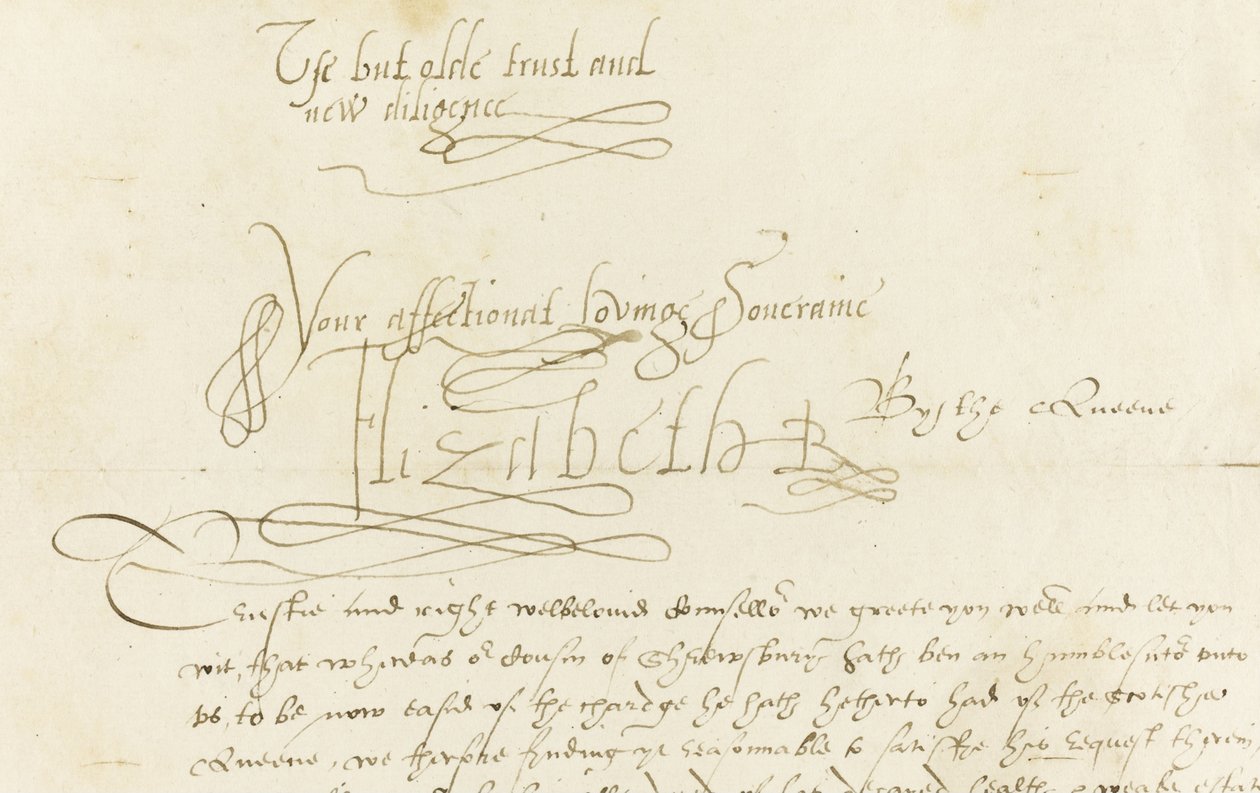 Use but olde trust and
new diligence
Your affectionat lovinge Soueraine
Elizabeth R
By the Queene
Trustie and right welbelovid Counsellor we greete you well and let you
wit, that wheras or Cousin of Shrewsbury hath ben an humble sutor vnto
vs, to be now easid of the chardge he hath hetherto had of the Scotishe
Queene, we therfore finding yt reasonnable to satisfie his request therein
decayed health & weake estate